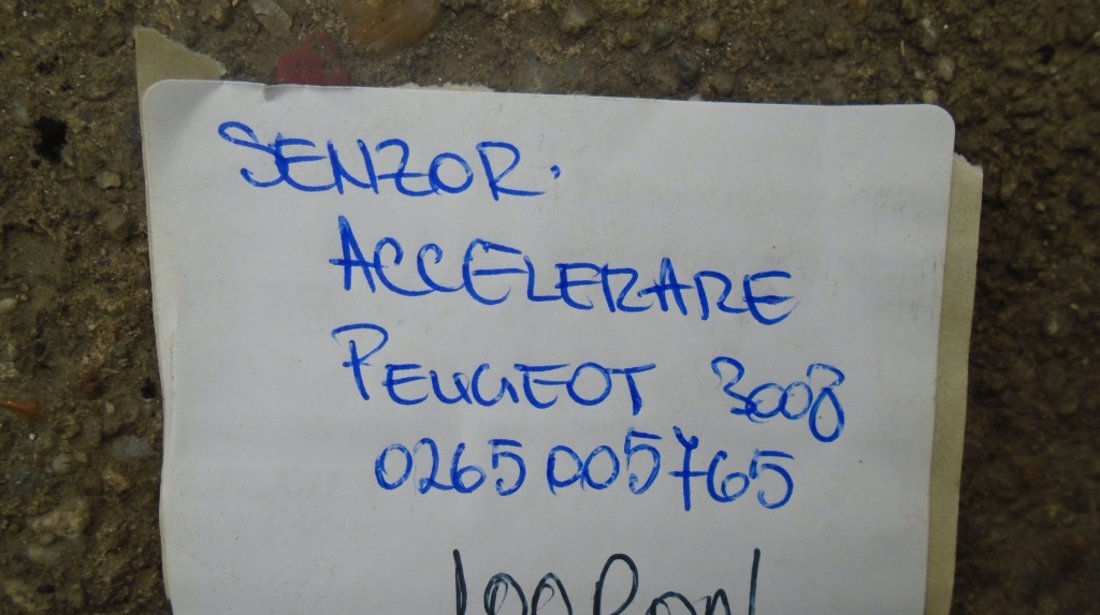 SENZOR.
ACCELERARE
PEUGEOT 3008
0265005765
100 RON